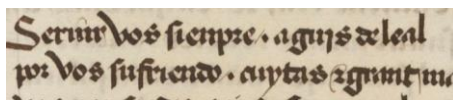 Seruir vos sienpre . a guys de leal
por vos sufriendo . cuytas & grant